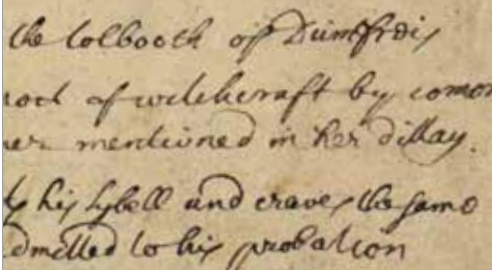 the tolbooth of Dumfreis
of witchcraft by comon
mentioned in her dittay.
his lybell and craves the same
admitted to his probation